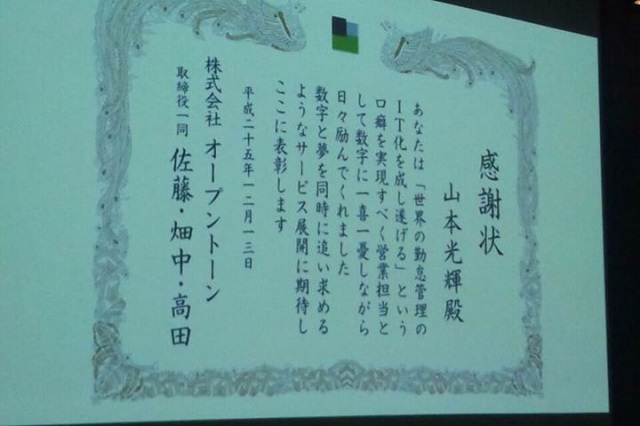 感謝状
山本光輝殿
あなたは「世界の勤怠管理の
IT化を成し遂げる」という
口癖を実現すべく営業担当と
して数字に一喜一憂しながら
日々励んでくれました
数字と夢を同時に追い求める
ようなサービス展開に期待し
ここに表彰します
平成二十五年一二月一三日
株式会社 オープントーン
取締役一同 佐藤・畑中・高田